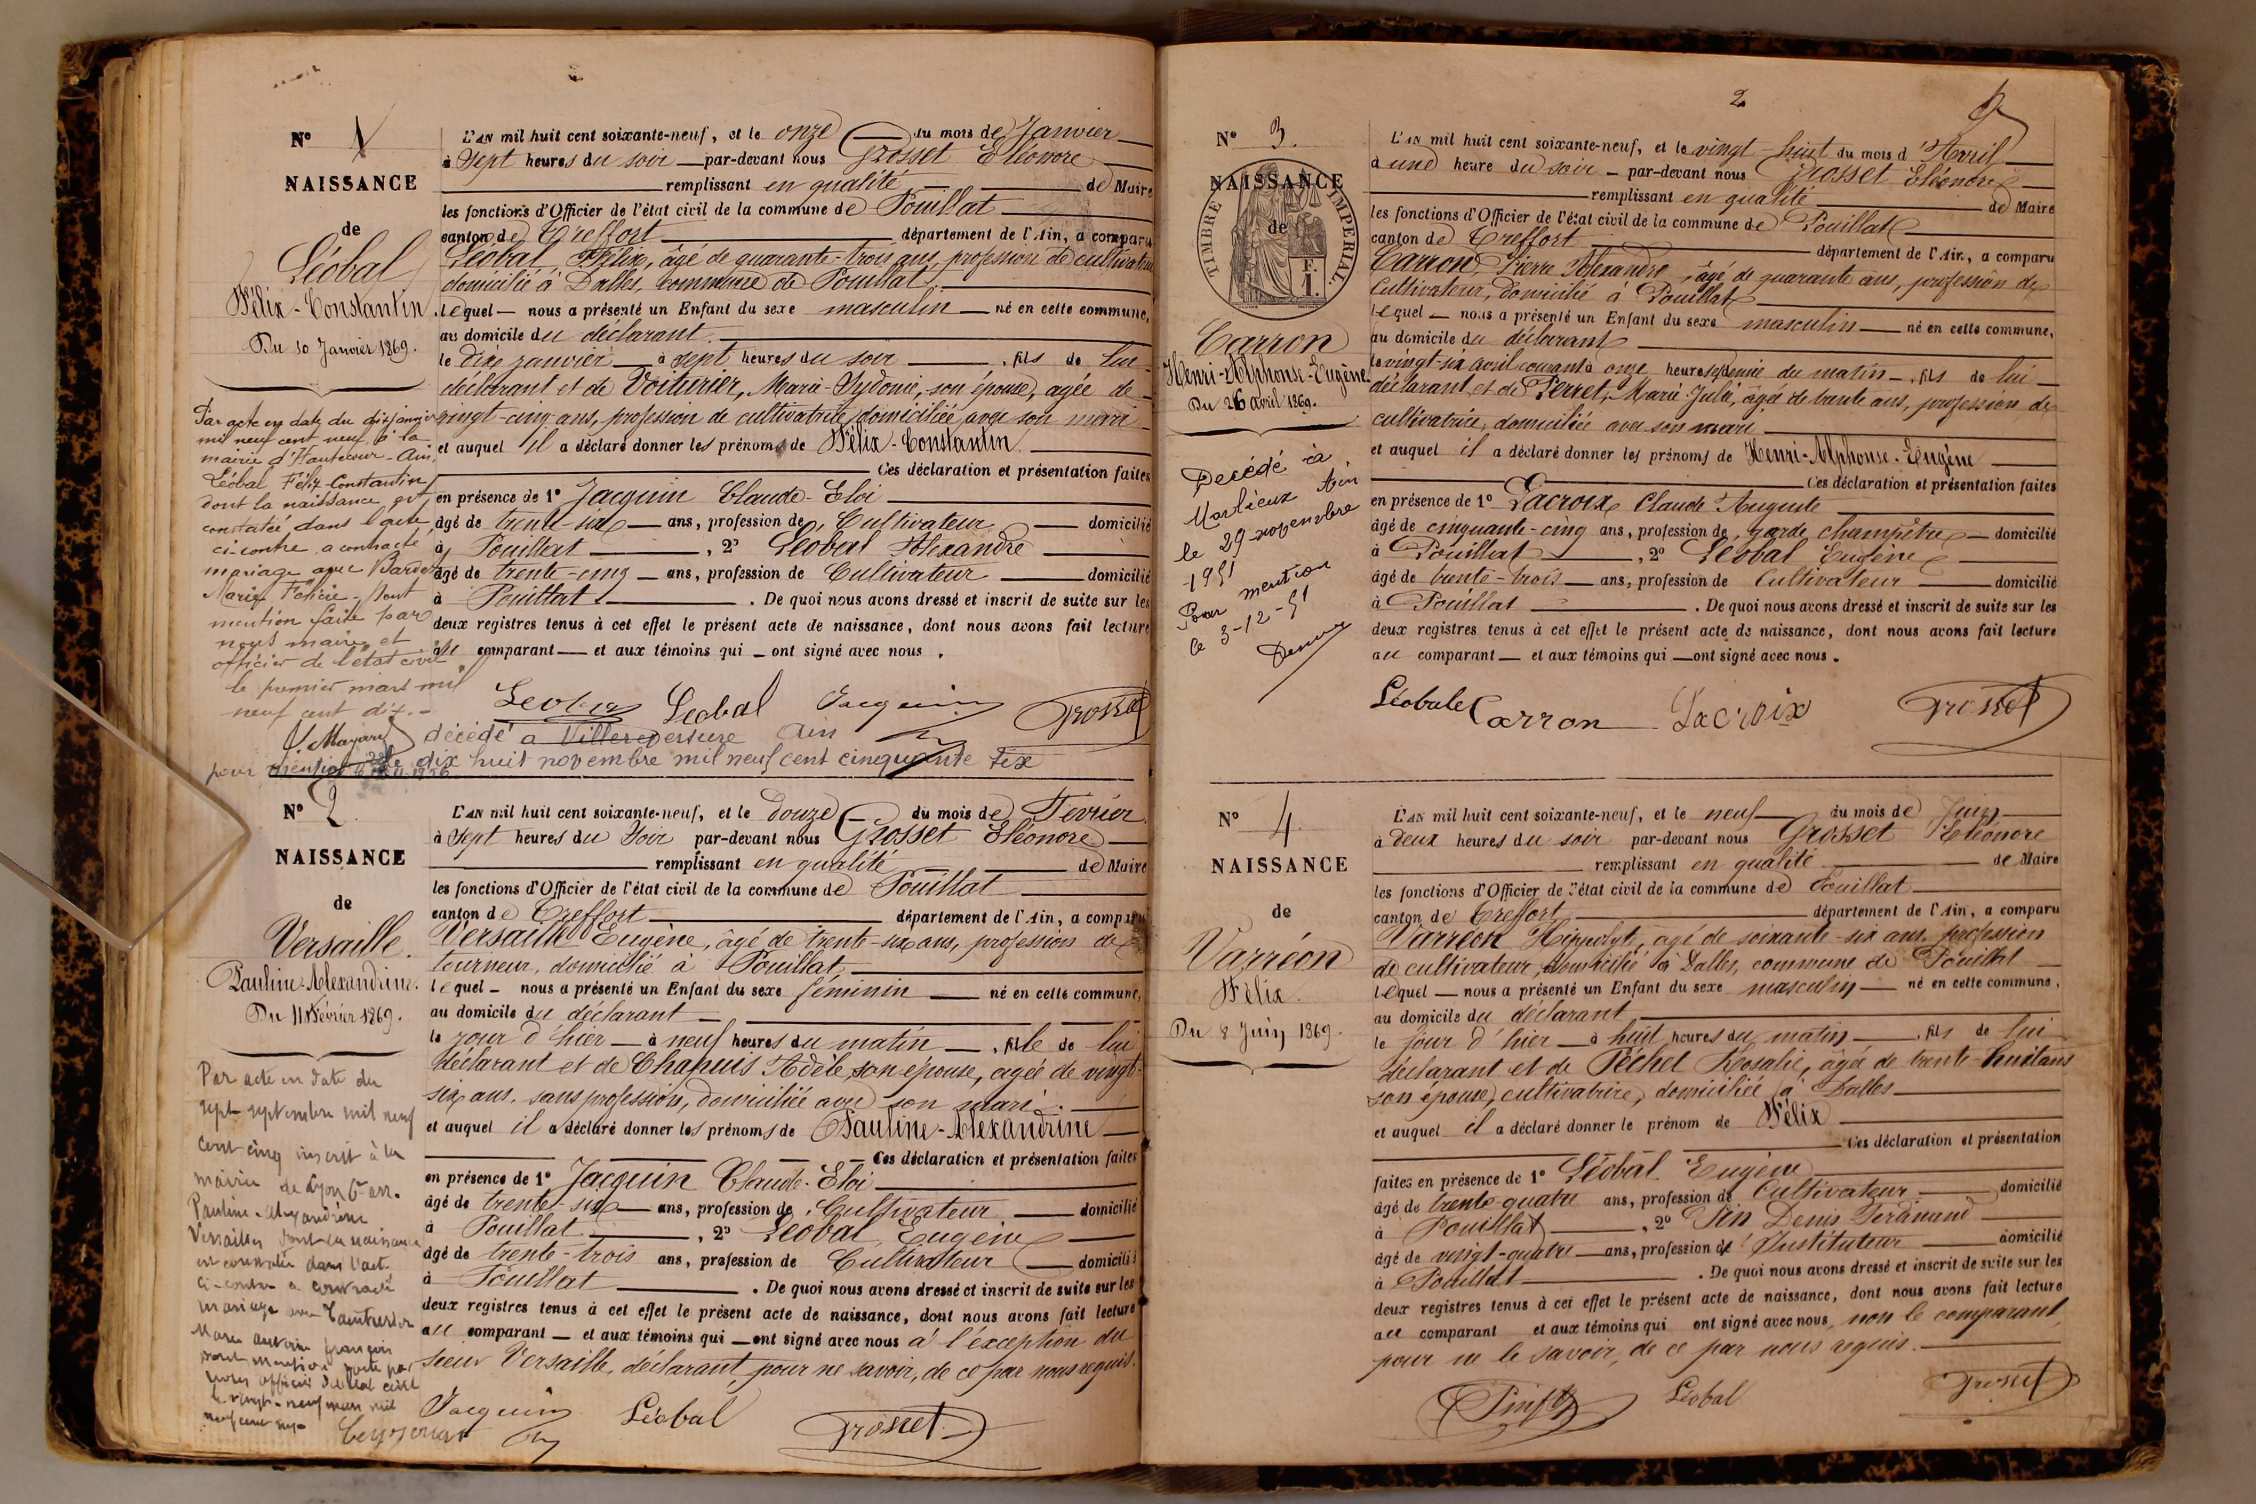 N° 1
NAISSANCE
de
Léobal
Félix-Constantin
Du 10 Janvier 1869.
Par acte en date du dix janvier
mil neuf cent neuf à la
mairie d'Hautecour-Ain,
Léobal Félix-Constantin
dont la naissance est
constatée dans l'acte
ci-contre a contracté
mariage avec
Marie Félicie. Dont
mention faite par
nous maire et
officier de l'état civil
le premier mars mil
neuf cent dix.-
L'AN mil huit cent soixante-neuf, et le onze du mois de Janvier
à sept heures du soir par-devant nous Grosset Eléonore
remplissant en qualité de Maire
les fonctions d'Officier de l'état civil de la commune de Pouillat
canton de Treffort département de l'Ain, a comparu
Léobal Félix, âgé de quarante-trois ans, profession de cultivateur
domicilié à Dalles, commune de Pouillat,
lequel nous a présenté un Enfant du sexe masculin né en cette commune,
au domicile du déclarant.
le dix janvier à sept heures du soir, fils de lui
déclarant et de Voiturier, Marie-Sydonie, son épouse, agée de
vingt-cinq ans, profession de cultivatrice, domiciliée avec son mari
et auquel il a déclaré donner les prénoms de Félix-Constantin
Ces déclaration et présentation faites
en présence de 1° Jacquin Claude-Eloi
âgé de trente-six ans, profession de Cultivateur domicilié
à Pouillat, 2° Léobal Alexandre
âgé de trente-cinq ans, profession de Cultivateur domicilié
à Pouillat. De quoi nous avons dressé et inscrit de suite sur les
deux registres tenus à cet effet le présent acte de naissance, dont nous avons fait lecture
au comparant et aux témoins qui ont signé avec nous.
Léobal Jacquin Grosset
décédé à Villereversure Ain
le dix huit novembre mil neuf cent cinquante six
pour mention
N° 2.
NAISSANCE
de
Versaille.
Pauline-Alexandrine.
Du 11 Février 1869.
Par acte en date du
sept septembre mil neuf
cent cinq inscrit à la
mairie de Lyon 6e arr.
Pauline-Alexandrine
Versailles dont la naissance
est constatée dans l'acte
ci-contre a contracté
mariage avec
Marie Antoine François
dont mention faite par
nous officier de l'état civil
le vingt-neuf mars mil
neuf cent
L'AN mil huit cent soixante-neuf, et le Douze du mois de Février
à Sept heures du Soir par-devant nous Grosset Eléonore
remplissant en qualité de Maire
les fonctions d'Officier de l'état civil de la commune de Pouillat
canton de Treffort département de l'Ain, a comparu
Versaille Eugène, âgé de trente-six ans, profession de
tourneur, domicilié à Pouillat,
lequel nous a présenté un Enfant du sexe féminin né en cette commune,
au domicile du déclarant
le jour d'hier à neuf heures du matin, fille de lui
déclarant et de Chapuis Adèle, son épouse, agée de vingt-
six ans, sans profession, domiciliée avec son mari.
et auquel il a déclaré donner les prénoms de Pauline-Alexandrine
Ces déclaration et présentation faites
en présence de 1° Jacquin Claude-Eloi
âgé de trente-six ans, profession de Cultivateur domicilié
à Pouillat, 2° Léobal Eugène
âgé de trente-trois ans, profession de Cultivateur domicilié
à Pouillat. De quoi nous avons dressé et inscrit de suite sur les
deux registres tenus à cet effet le présent acte de naissance, dont nous avons fait lecture
au comparant et aux témoins qui ont signé avec nous à l'exception du
sieur Versaille, déclarant, pour ne savoir, de ce par nous requis.
Jacquin Léobal Grosset
2
N° 3.
NAISSANCE
de
TIMBRE IMPERIAL.
F.
1.
Carron
Henri-Alphonse-Eugène
Du 26 avril 1869.
Décédé à
Marlieux Ain
le 29 novembre
1951
Pour mention
le 3-12-51
L'AN mil huit cent soixante-neuf, et le vingt-huit du mois d'Avril
à une heure du soir par-devant nous Grosset Eléonore
remplissant en qualité de Maire
les fonctions d'Officier de l'état civil de la commune de Pouillat
canton de Treffort département de l'Ain, a comparu
Carron, Pierre Alexandre, âgé de quarante ans, profession de
Cultivateur, domicilié à Pouillat
lequel nous a présenté un Enfant du sexe masculin né en cette commune,
au domicile du déclarant
le vingt-six avril courant à onze heures et demie du matin, fils de lui
déclarant et de Perret, Marie Julie, âgée de trente ans, profession de
cultivatrice, domiciliée avec son mari
et auquel il a déclaré donner les prénoms de Henri-Alphonse-Eugène
Ces déclaration et présentation faites
en présence de 1° Lacroix Claude Auguste
âgé de cinquante-cinq ans, profession de garde champêtre domicilié
à Pouillat, 2° Léobal Eugène
âgé de trente-trois ans, profession de Cultivateur domicilié
à Pouillat. De quoi nous avons dressé et inscrit de suite sur les
deux registres tenus à cet effet le présent acte de naissance, dont nous avons fait lecture
au comparant et aux témoins qui ont signé avec nous.
Léobal Carron Lacroix Grosset
N° 4.
NAISSANCE
de
Varréon
Félix.
Du 8 Juin 1869.
L'AN mil huit cent soixante-neuf, et le neuf du mois de Juin
à deux heures du soir par-devant nous Grosset Eléonore
remplissant en qualité de Maire
les fonctions d'Officier de l'état civil de la commune de Pouillat
canton de Treffort département de l'Ain, a comparu
Varréon Hippolyte, âgé de soixante-six ans, profession
de cultivateur, domicilié à Dalles, commune de Pouillat
lequel nous a présenté un Enfant du sexe masculin né en cette commune,
au domicile du déclarant
le jour d'hier à huit heures du matin, fils de lui
déclarant et de Péchet Rosalie, âgée de trente-huit ans
son épouse, cultivatrice, domiciliée à Dalles
et auquel il a déclaré donner le prénom de Félix
Ces déclaration et présentation
faites en présence de 1° Léobal Eugène
âgé de trente-quatre ans, profession de Cultivateur domicilié
à Pouillat, 2° Pin Denis Ferdinand
âgé de vingt-quatre ans, profession d'Instituteur domicilié
à Pouillat. De quoi nous avons dressé et inscrit de suite sur les
deux registres tenus à cet effet le présent acte de naissance, dont nous avons fait lecture
au comparant et aux témoins qui ont signé avec nous, non le comparant,
pour ne le savoir, de ce par nous requis.
Léobal Grosset